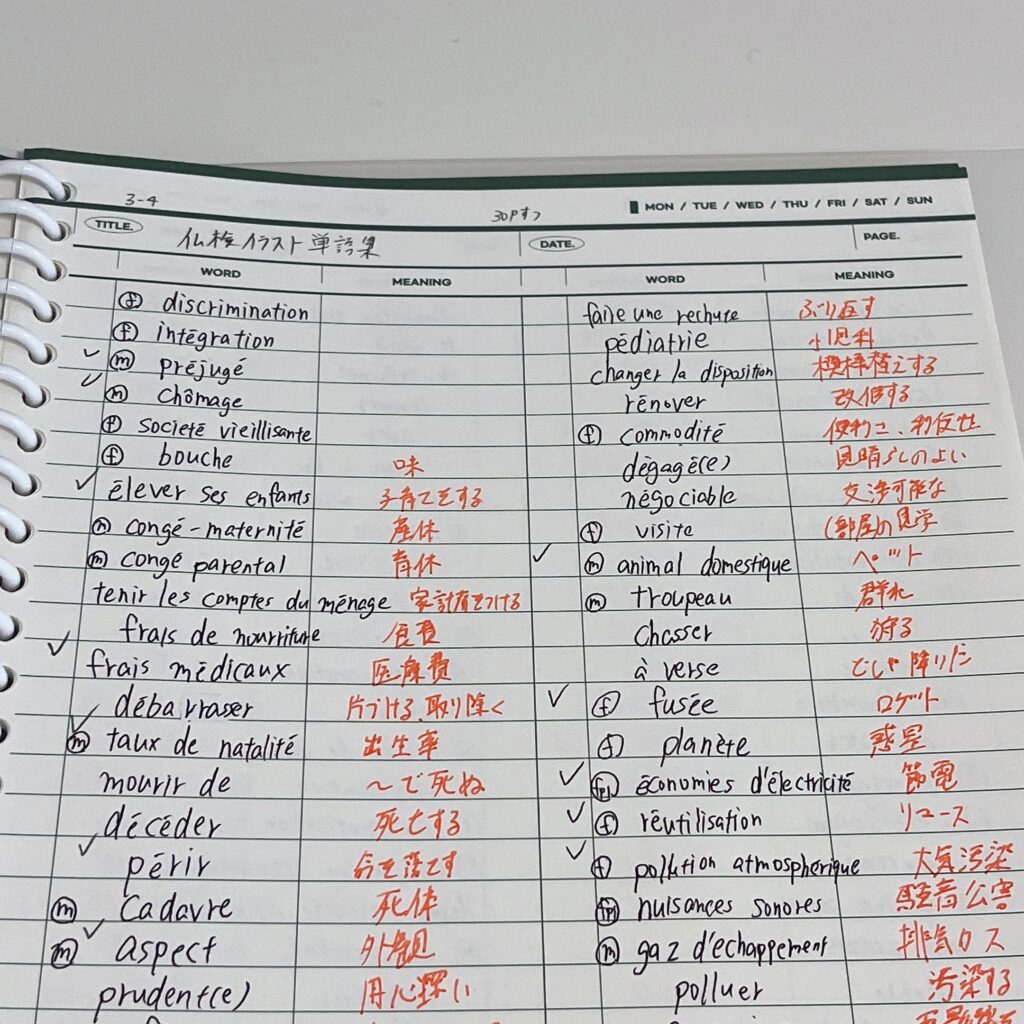 3-4
30Pずつ
MON / TUE / WED / THU / FRI / SAT / SUN
TITLE.
仏検イラスト単語集
DATE.
PAGE.
WORD MEANING
ⓕ discrimination
ⓕ intégration
✓ ⓜ préjugé
✓ ⓜ chômage
ⓕ societé vieillisante
ⓕ bouche 味
✓ élever ses enfants 子育てをする
ⓜ congé-maternité 産休
ⓜ congé parental 育休
tenir les comptes du ménage 家計簿をつける
frais de nourriture 食費
✓ frais médicaux 医療費
débarraser 片づける、取り除く
✓ ⓜ taux de natalité 出生率
mourir de 〜で死ぬ
décéder 死亡する
✓ périr 命を落とす
ⓜ cadavre 死体
✓ ⓜ aspect 外観
prudent(e) 用心深い
WORD MEANING
faire une rechute ぶり返す
pédiatrie 小児科
changer la disposition 模様替えする
rénover 改修する
ⓕ commodité 便利さ、利便性
dégagé(e) 見晴らしのよい
négociable 交渉可能な
ⓕ visite (部屋)の見学
✓ ⓜ animal domestique ペット
ⓜ troupeau 群れ
chasser 狩る
à verse どしゃ降りに
✓ ⓕ fusée ロケット
ⓕ planète 惑星
✓ fpl économies d'électricité 節電
✓ ⓕ réutilisation リユース
✓ ⓕ pollution atmosphérique 大気汚染
fpl nuisances sonores 騒音公害
ⓜ gaz d'echappement 排気ガス
polluer 汚染する